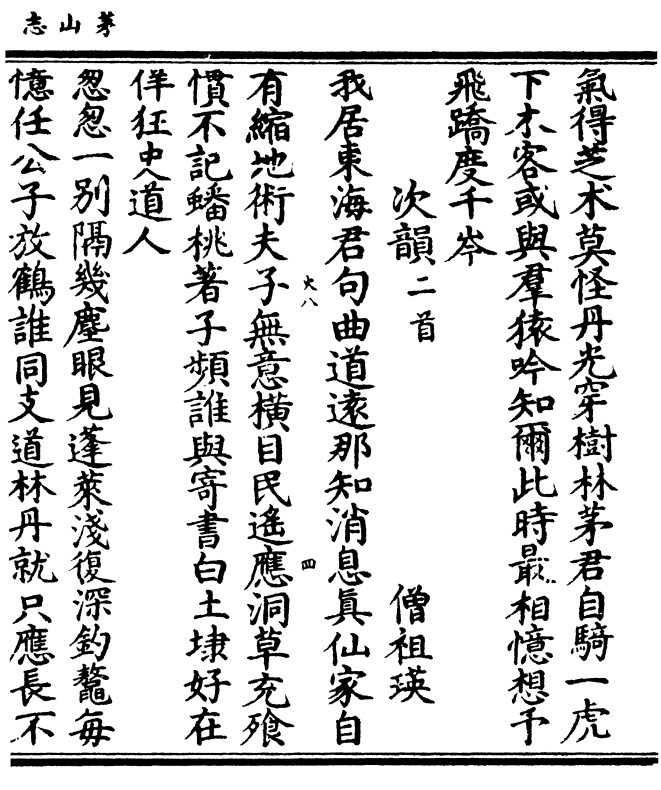 茅山志
氣得芝术莫怪丹光穿樹林茅君自騎一虎
下木客或與羣猿吟知爾此時最相憶想予
飛蹻度千岑
次韻二首
僧祖瑛
我居東海君句曲道遠那知消息眞仙家自
有縮地術夫子無意橫目民遙應洞草充飱
慣不記蟠桃著子頻誰與寄書白土埭好在
佯狂史道人
怱怱一別隔幾塵眼見蓬萊淺復深釣鼇每
憶任公子放鶴誰同支道林丹就只應長不
火八
四